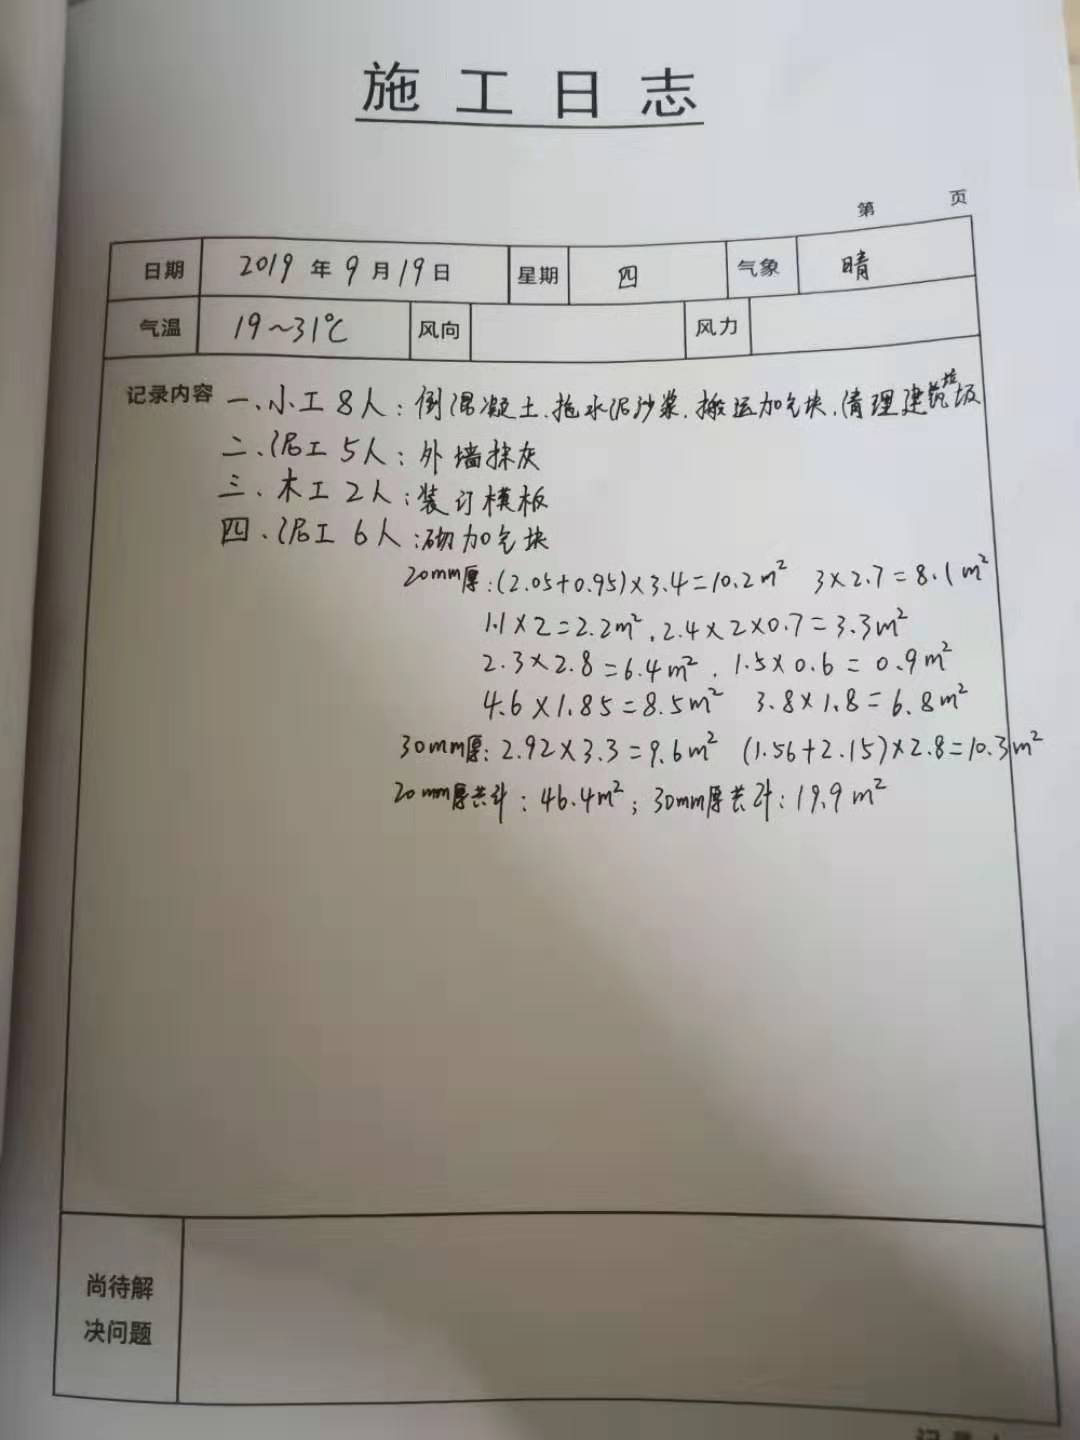 施工日志
第 页
日期 2019年9月19日 星期 四 气象 晴
气温 19~31℃ 风向 风力
记录内容 一、小工8人：倒混凝土、拖水泥沙浆、搬运加气块、清理建筑垃圾
二、泥工5人：外墙抹灰
三、木工2人：装订模板
四、泥工6人：砌加气块
20mm厚：(2.05+0.95)×3.4=10.2m² 3×2.7=8.1m²
1.1×2=2.2m²、2.4×2×0.7=3.3m²
2.3×2.8=6.4m²、1.5×0.6=0.9m²
4.6×1.85=8.5m² 3.8×1.8=6.8m²
30mm厚：2.92×3.3=9.6m² (1.56+2.15)×2.8=10.3m²
20mm厚共计：46.4m²；30mm厚共计：19.9m²
尚待解
决问题